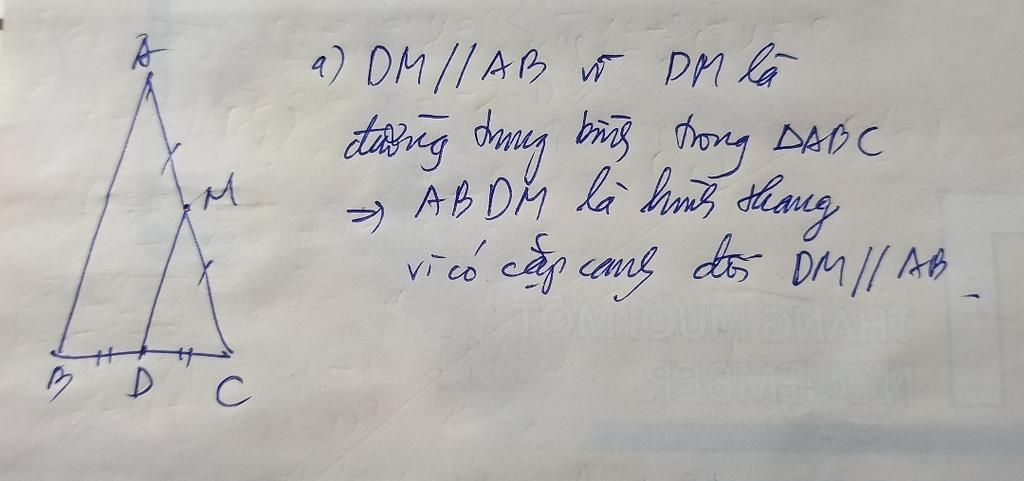 A
M
B
D
C
a) DM // AB vì DM là
đường trung bình trong ΔABC
=> ABDM là hình thang
vì có cặp cạnh đối DM // AB
THÁNG MƯỜI MỘT
NOVEMBER